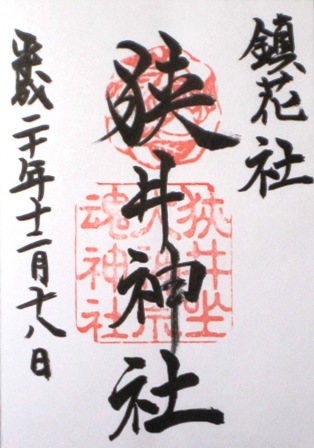 鎮花社
狭井神社
狭井坐大神荒魂神社
平成二十年十二月十八日